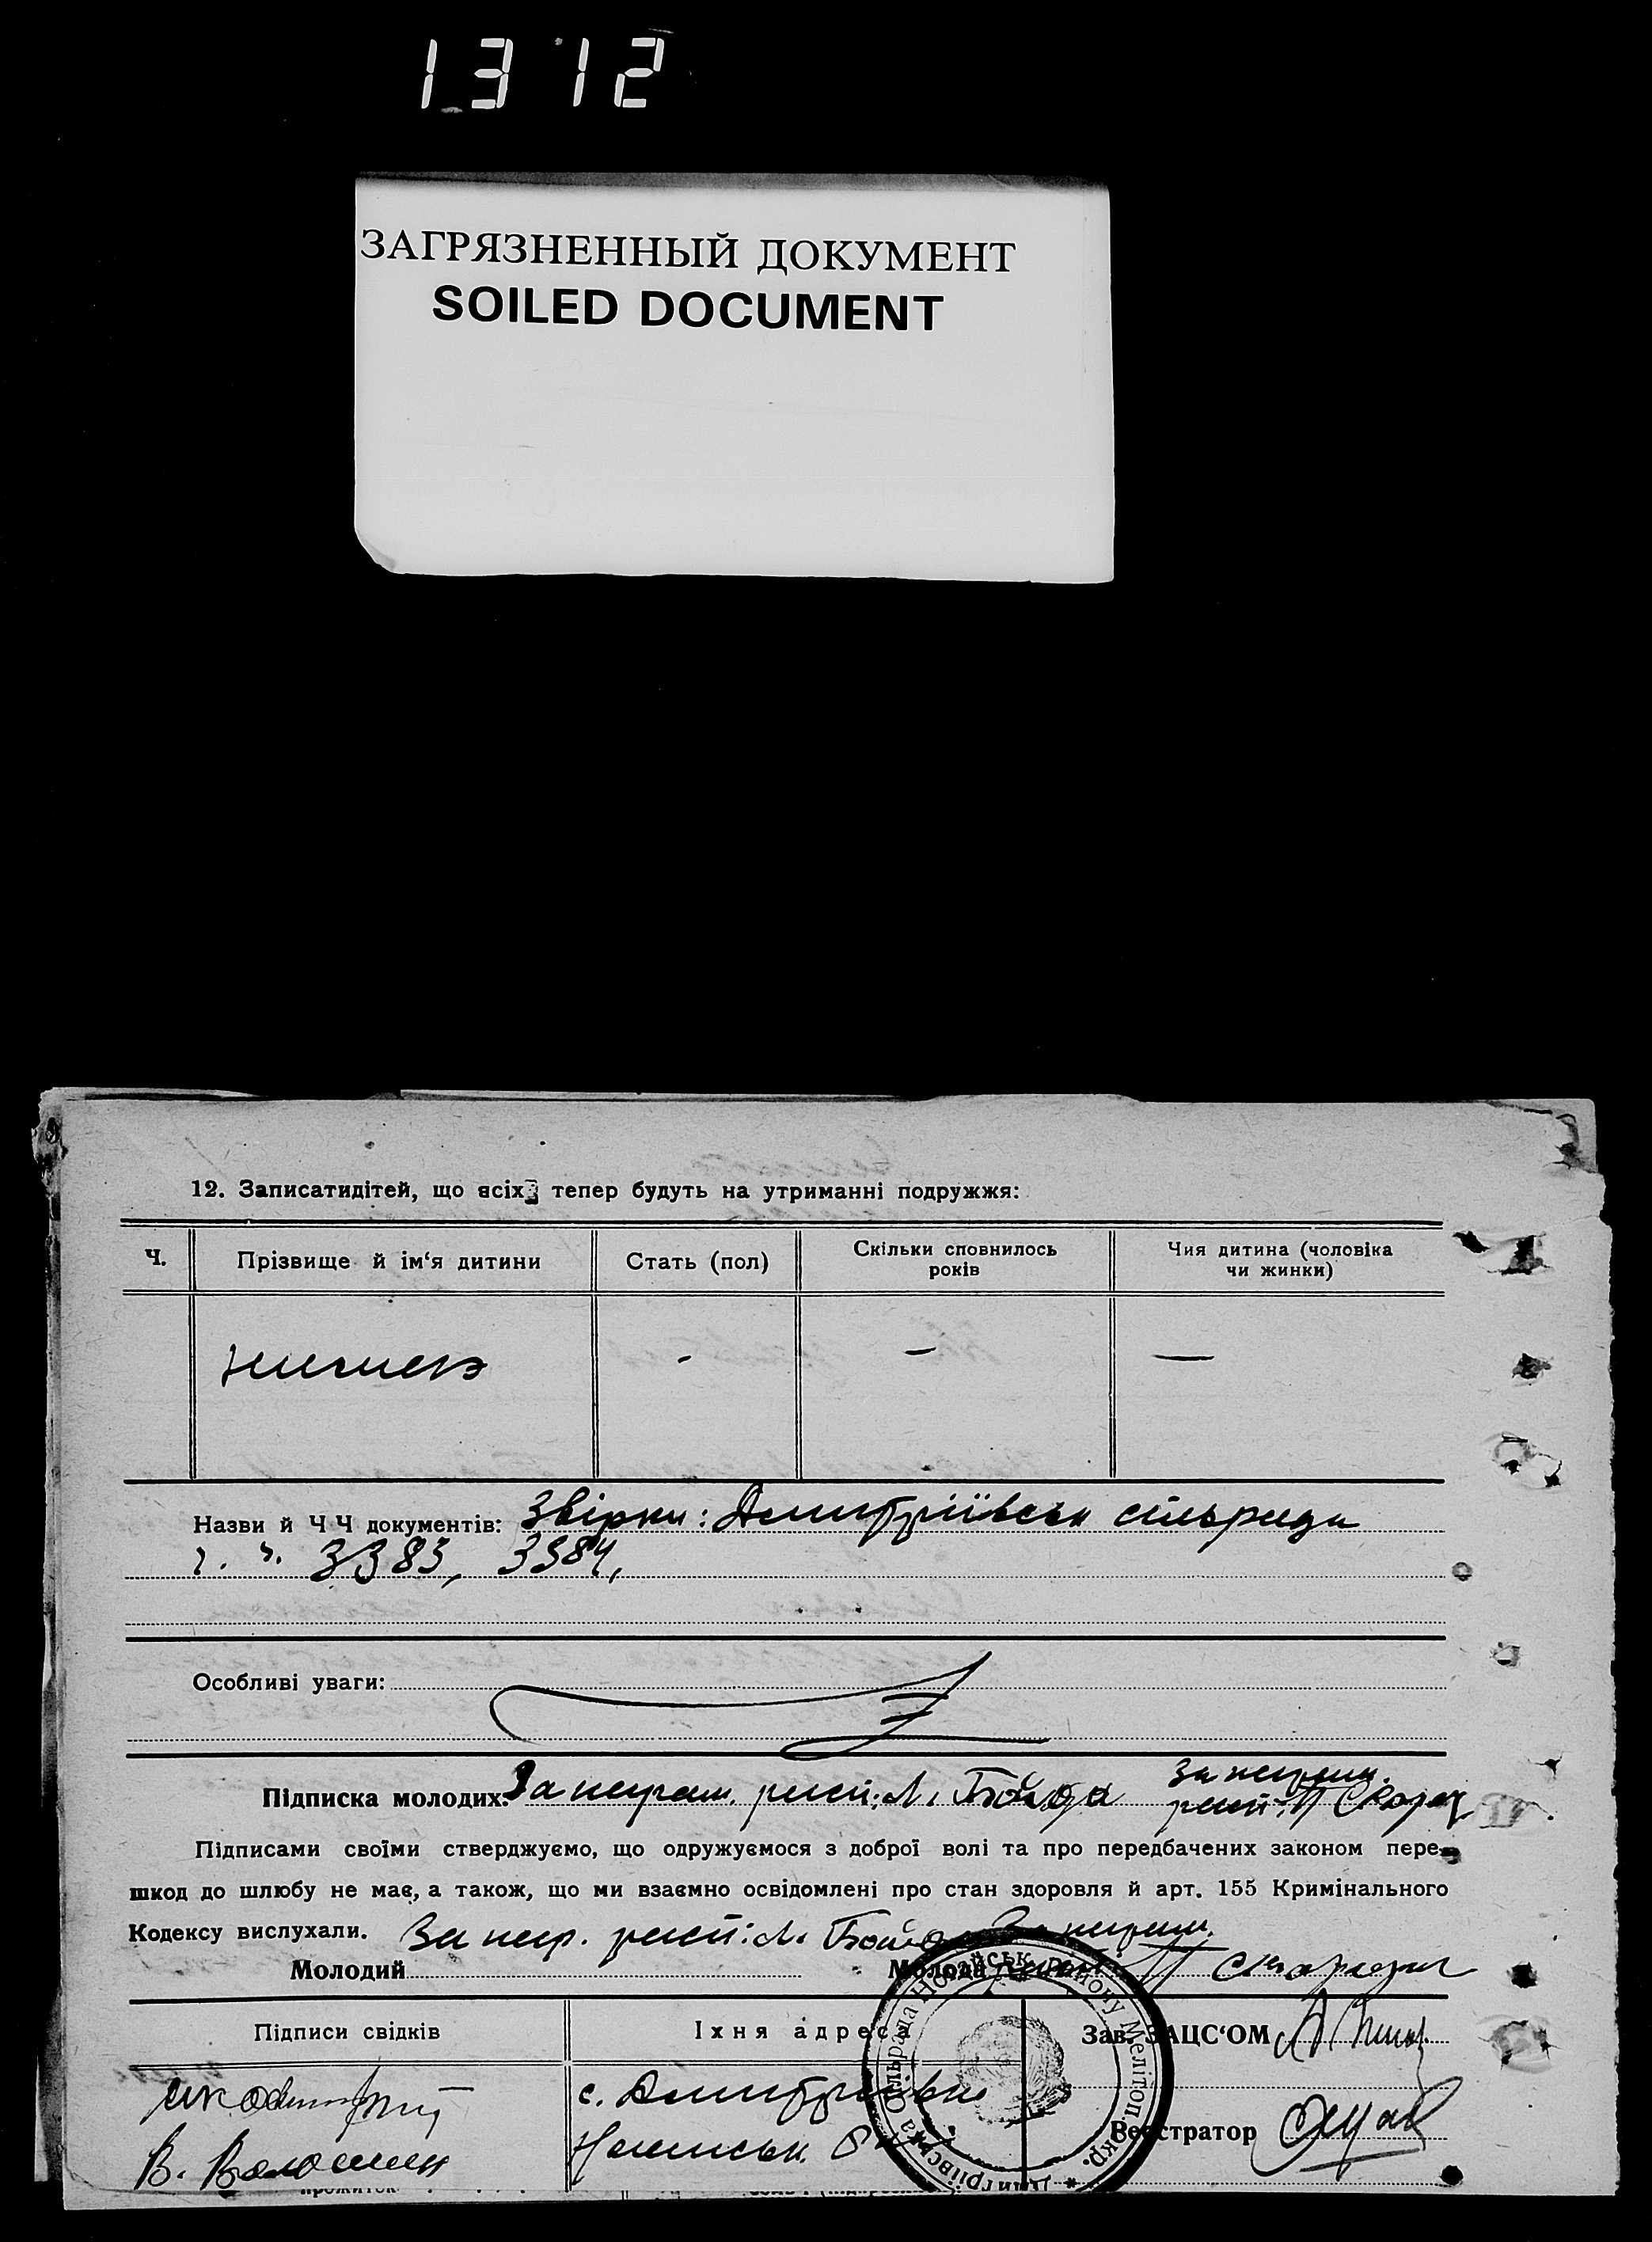 1312
ЗАГРЯЗНЕННЫЙ ДОКУМЕНТ
SOILED DOCUMENT
12. Записатидітей, що всіх тепер будуть на утриманні подружжя:
Ч. Прізвище й ім‘я дитини Стать (пол) Скільки сповнилось років Чия дитина (чоловіка чи жинки)
- — —
Назви й Ч Ч документів: Звірки: Дмитріївськ сільради
ч. ч. 3383, 3384,
Особливі уваги:
Підписка молодих: За неграм. расп: Л. Бойко За неграм.
расп: П Скоряд
Підписами своїми стверджуємо, що одружуємося з доброї волі та про передбачених законом пере-
шкод до шлюбу не має, а також, що ми взаємно освідомлені про стан здоровля й арт. 155 Кримінального
Кодексу вислухали. За негр. расп: Л. За неграм.
Молодий Молода
Підписи свідків Їхня адреса Зав. ЗАЦС‘ОМ
с. Дмитрівка
В. Волошин
Реєстратор
Дмитріївська Сільрада Ногайськ. району Мелітоп. окр.